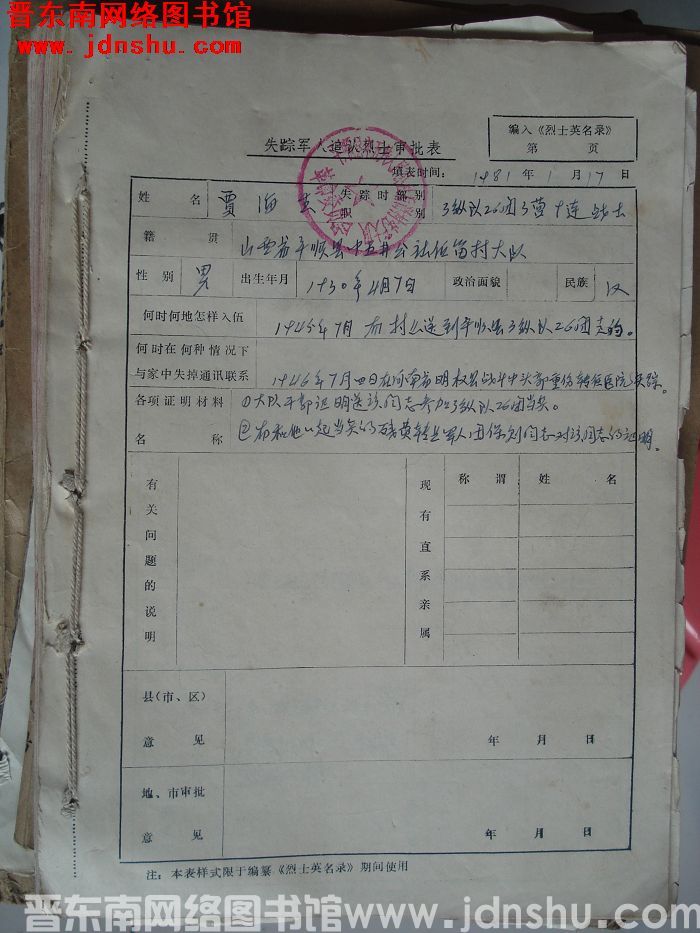 晋东南网络图书馆
www.jdnshu.com
编入《烈士英名录》
第 页
失踪军人追认烈士审批表
填表时间： 1981 年 1 月 17 日
姓 名 贾海 失踪时部别职别 3纵队26团3营十连 战士
籍 贯 山西省平顺县中五井公社 留村大队
性 别 男 出生年月 1930年4月7日 政治面貌 民族 汉
何时何地怎样入伍 1945年7月 村公送到平顺县3纵队26团
何时在何种情况下与家中失掉通讯联系 1946年7月四日在河南省明权县战斗中头部重伤转往医院失踪
各项证明材料名称 ①大队干部证明送该同志参加3纵队26团当兵。
②有和他一起当兵的残费转业军人 同志对该同志的证明。
有关问题的说明
现有直系亲属
称 谓 姓 名
县（市、区）
意 见 年 月 日
地、市审批
意 见 年 月 日
注：本表样式限于编纂《烈士英名录》期间使用
晋东南网络图书馆www.jdnshu.com